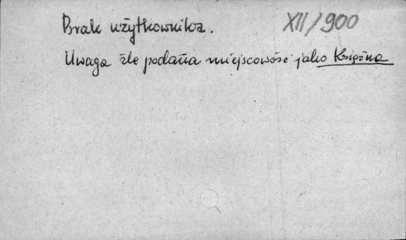 Brak użytkownika.
XII/900
Uwaga źle podana miejscowość jako Księżna